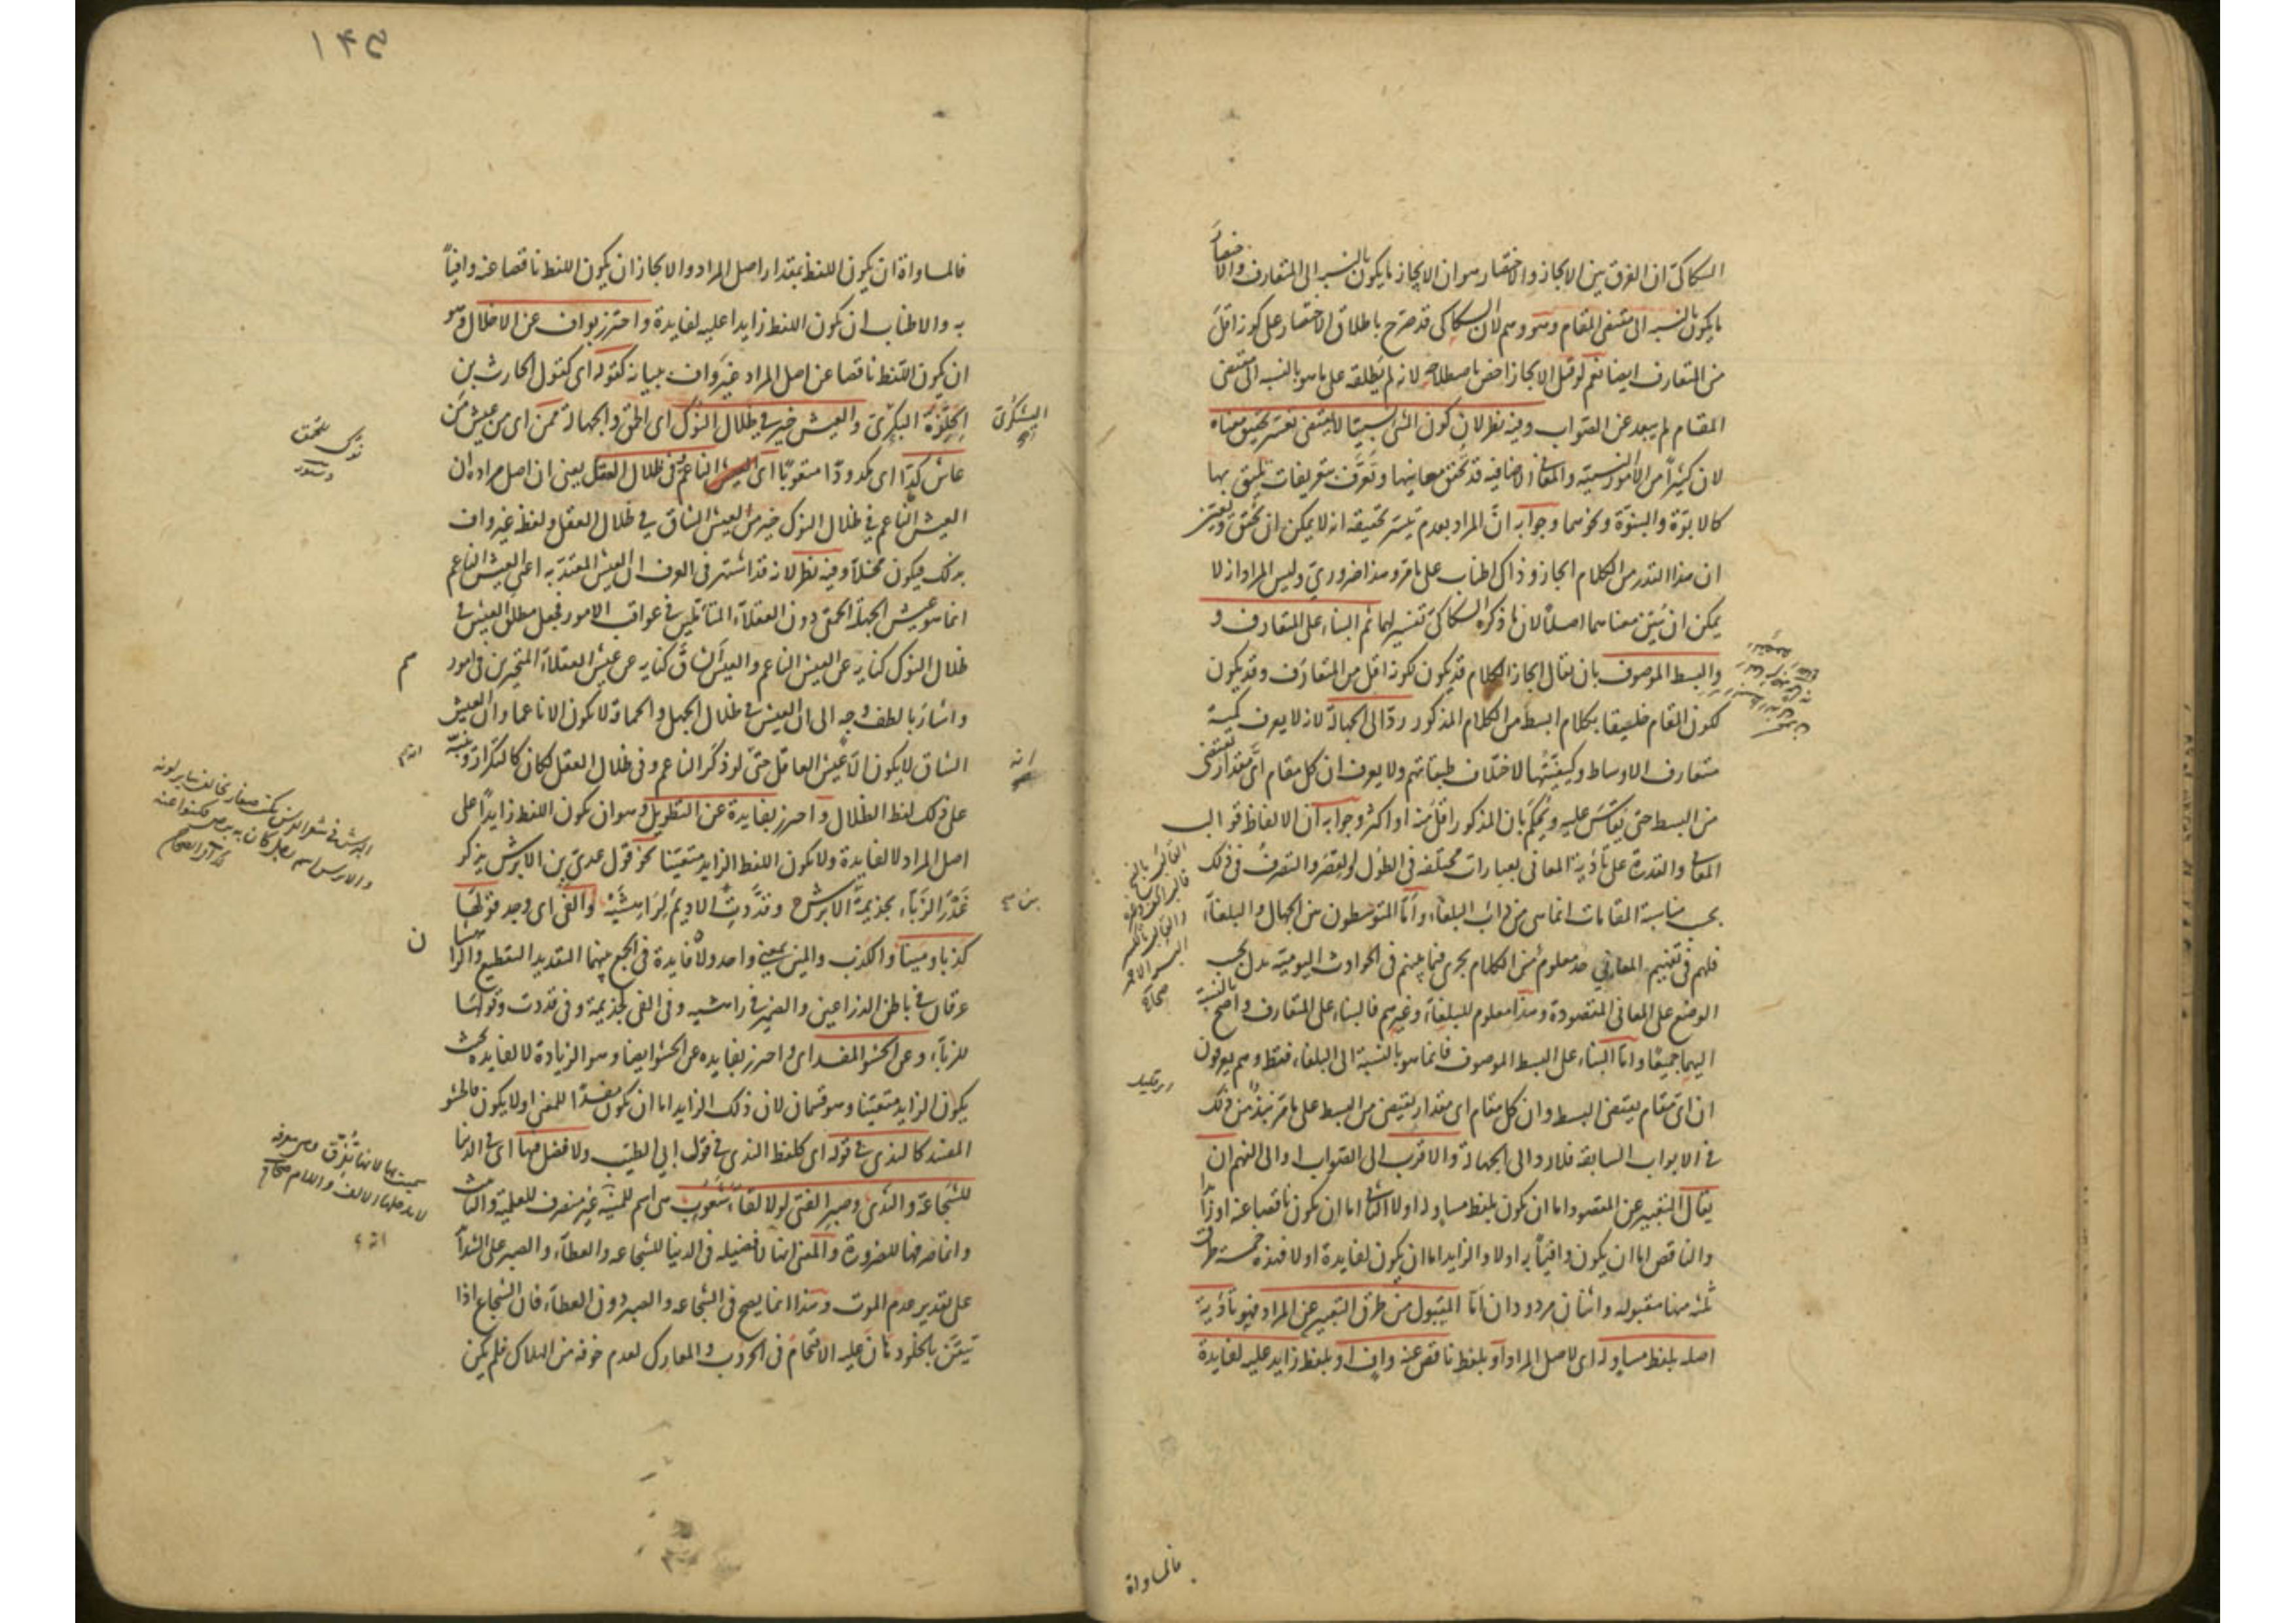 السكاكى ان الفرق بين الايجاز والاختصار هو ان الايجاز ما يكون بالنسبه الى المتعارف والاختصار
ما يكون بالنسبه الى مقتضى المقام وهو وهم لان السكاكى قد صرح باطلاق الاختصار على كونه اقل
من المتعارف ايضا نعم لو قيل الايجاز اخص باصطلاحه لانه لم يطلقه على ما هو بالنسبه الى مقتضى
المقام لم يبعد عن الصواب وفيه نظر لان كون الشئ نسبيا لا يقتضى تعسر تحقيق معناه
لان كثيرا من الامور النسبيه والمعانى الاضافيه قد تحقق معانيها وتعرف بتعريفات تليق بها
كالابوة والبنوة ونحوهما وجوابه ان المراد بعدم تيسر تحقيقه انه لا يمكن ان يحقق ويعين
ان هذا القدر من الكلام ايجاز وذاك اطناب على ما مر وهذا ضرورى وليس المراد انه لا
يمكن ان يبين معناهما اصلا لان ما ذكره السكاكى تفسير لهما ثم البناء على المتعارف و
والبسط الموصوف بان يقال ايجاز الكلام قد يكون لكونه اقل من المتعارف وقد يكون
لكون المقام خليقا بكلام ابسط من الكلام المذكور رد الى الجهالة لانه لا يعرف كمية
متعارف الاوساط وكيفيتها لاختلاف طبقاتهم ولا يعرف ان كل مقام اى مقدار يقتضى
من البسط حتى يقاس عليه ويحكم بان المذكور اقل منه او اكثر وجوابه ان الالفاظ قوالب
المعانى والقدرة على تأدية المعانى بعبارات مختلفه فى الطول والقصر والتصرف فى ذلك
بحسب مناسبة المقامات انما هى من دأب البلغاء واما المتوسطون بين الجهال والبلغاء
فلهم فى تفهيم المعانى حد معلوم من الكلام يجرى فيما بينهم فى الحوادث اليومية يدل بحسب
الوضع على المعانى المقصودة وهذا معلوم للبلغاء وغيرهم فالبناء على المتعارف واضح بالنسبة
اليهما جميعا واما البناء على البسط الموصوف فانما هو بالنسبة الى البلغاء فقط وهم يعرفون
ان اى مقام يقتضى البسط وان كل مقام اى مقدار يقتضى من البسط على ما مر نبذ من ذلك
فى الابواب السابقه فلا رد الى الجهالة والاقرب الى الصواب او الى الفهم ان
يقال التعبير عن المقصود اما ان يكون بلفظ مساو له اولا الثانى اما ان يكون ناقصا عنه او زايدا
والناقص اما ان يكون وافيا به اولا والزايد اما ان يكون لفايدة اولا فهذه خمسة طرق
ثلثه منها مقبوله واثنان مردودان اما المقبول من طرق التعبير عن المراد فهو تأدية
اصله بلفظ مساو له اى لاصل المراد او بلفظ ناقص عنه واف او بلفظ زايد عليه لفايدة
فالمساواة
١٤٥
فالمساواة ان يكون اللفظ بمقدار اصل المراد والايجاز ان يكون اللفظ ناقصا عنه وافيا
به والاطناب ان يكون اللفظ زايدا عليه لفايدة واحترز بواف عن الاخلال وهو
ان يكون اللفظ ناقصا عن اصل المراد غير واف ببيانه كقوله اى كقول الحارث بن
الحلزة البكرى والعيش خير فى ظلال النوك اى الحمق والجهالة ممن اى من عيش من
عاش كدا اى مكدودا متعوبا اى العيش الناعم فى ظلال العقل يعنى ان اصل مراده ان
العيش الناعم فى ظلال النوك خير من العيش الشاق فى ظلال العقل ولفظه غير واف
بذلك فيكون مخلا وفيه نظر لانه قد اشتهر فى العرف ان العيش المعتد به اعنى العيش الناعم
انما هو عيش الجهلة الحمق دون العقلاء المتأملين فى عواقب الامور فجعل مطلق العيش فى
ظلال النوك كناية عن العيش الناعم والعيش الشاق كناية عن عيش العقلاء المتحيرين فى امور
واشار بالطف وجه الى ان العيش فى ظلال الجهل والحماقة لا يكون الا ناعما وان العيش
الشاق لا يكون الا عيش العاقل حتى لو ذكر الناعم وفى ظلال العقل لكان كالتكرار ونبه
على ذلك لفظ الظلال واحترز بفايدة عن التطويل وهو ان يكون اللفظ زايدا على
اصل المراد لا لفايدة ولا يكون اللفظ الزايد متعينا نحو قول عدى بن الابرش يذكر
غدر الزباء بجذيمة الابرش وقددت الاديم لراهشيه والفى اى وجد قولها
كذبا ومينا والكذب والمين بمعنى واحد ولا فايدة فى الجمع بينهما التقديد التقطيع والراهشان
عرقان فى باطن الذراعين والضمير فى راهشيه وفى الفى لجذيمة وفى قددت وقولها
للزباء وعن الحشو المفسد اى واحترز بفايده عن الحشو ايضا وهو الزيادة لا لفايده بحيث
يكون الزايد متعينا وهو قسمان لان ذلك الزايد اما ان يكون مفسدا للمعنى او لا يكون فالحشو
المفسد كالندى فى قوله اى كلفظ الندى فى قول ابى الطيب ولا فضل فيها اى فى الدنيا
للشجاعة والندى وصبر الفتى لولا لقاء شعوب هى اسم للمنية غير منصرف للعلمية والتأنيث
وانما صرفها للضرورة والمعنى انها لا فضيله فى الدنيا للشجاعه والعطاء والصبر على الشدائد
على تقدير عدم الموت وهذا انما يصح فى الشجاعه والصبر دون العطاء فان الشجاع اذا
تيقن بالخلود هان عليه الاقتحام فى الحروب والمعارك لعدم خوفه من الهلاك فلم يكن